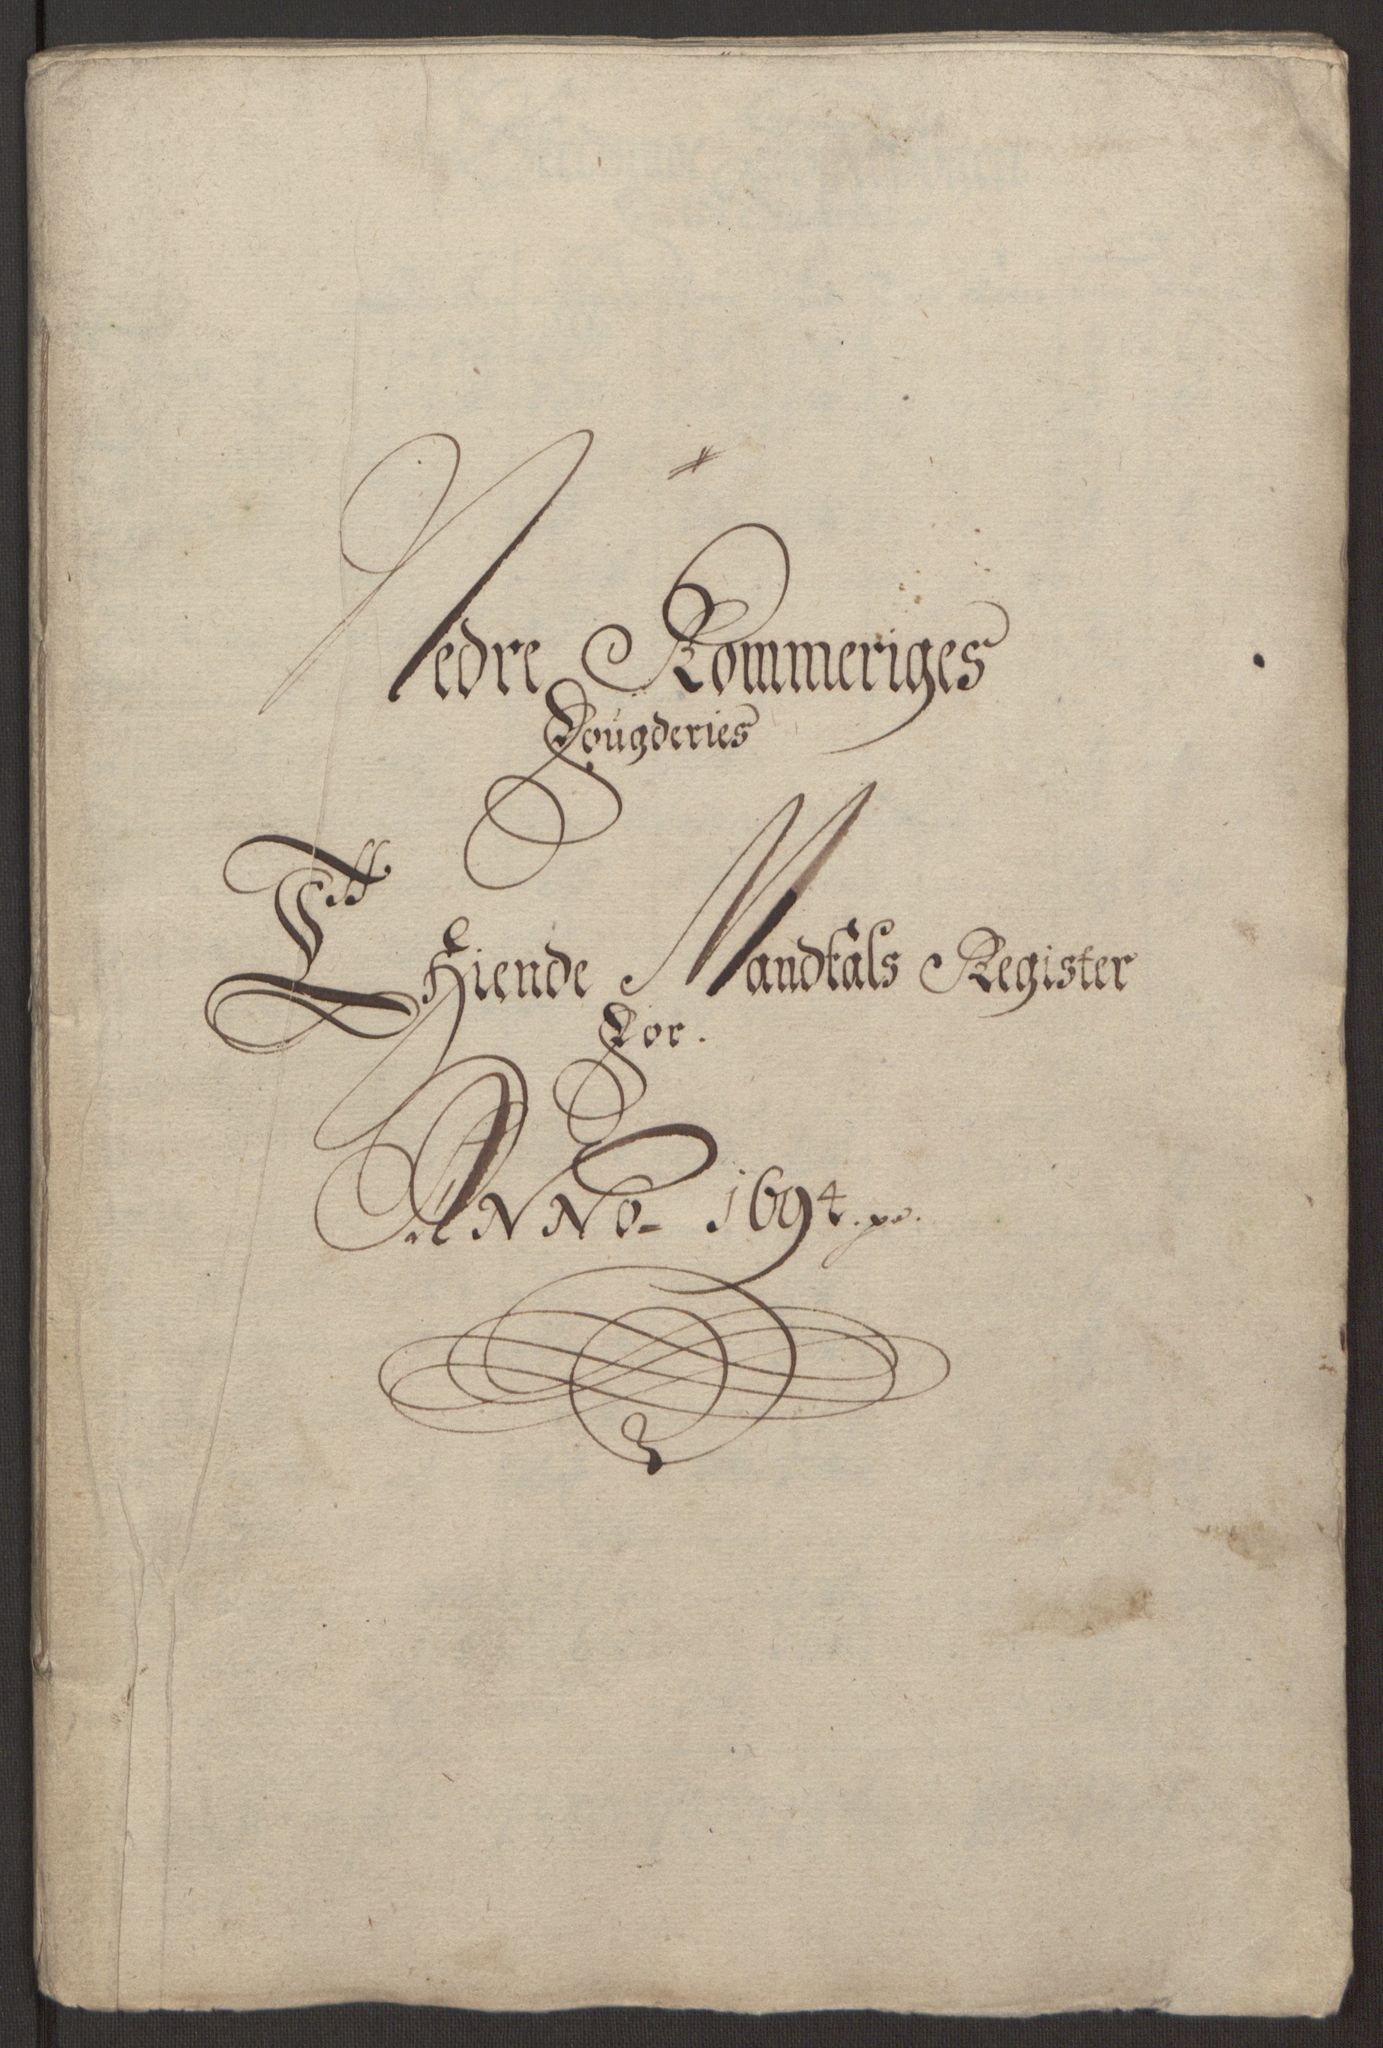 Nedre Rommeriges
Fougderies
Thiende Mandtals Register
For.
Anno 1694.